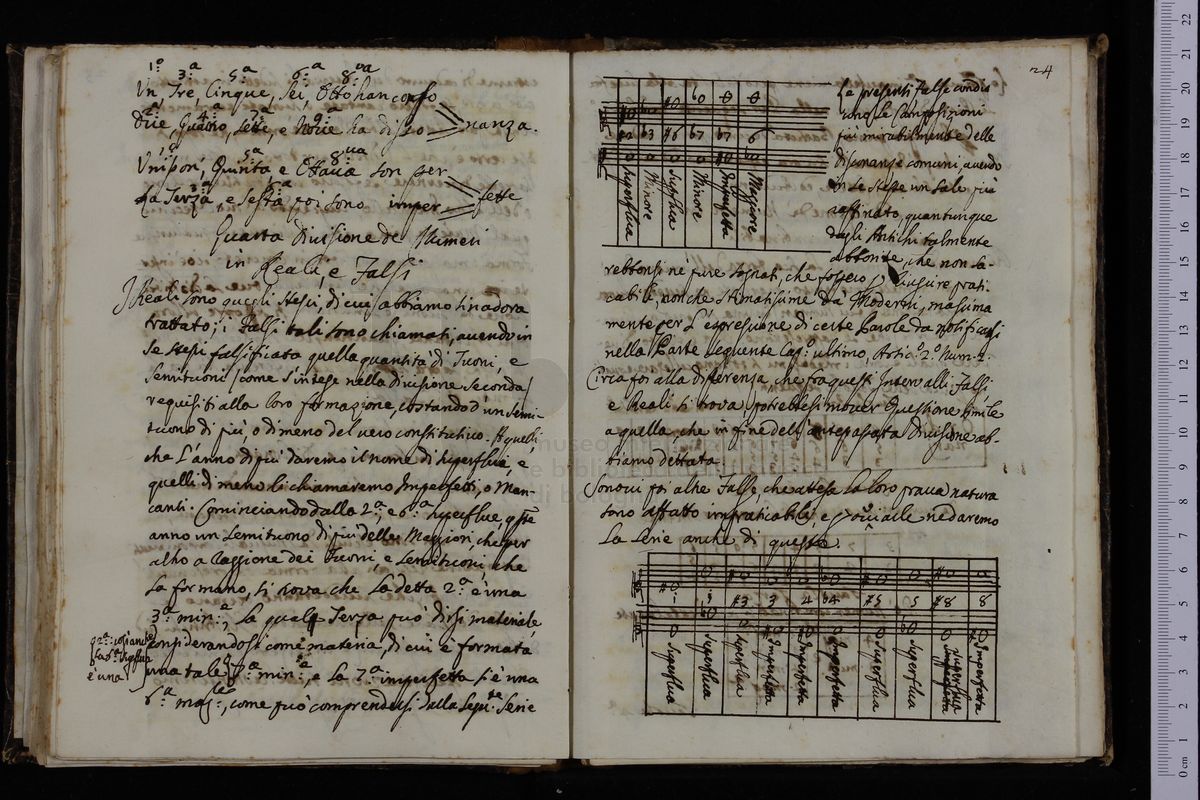 1º 3ª 5ª 6ª 8ᵛᵃ
Un, Tre, Cinque, Sei, Otto han conso
2ª 4ª 7ª 9ª
Due, Quattro, Sette, e Nove ha disso nanza.
1º 5ª 8ᵛᵃ
Unison', Quinta e Ottava son per
3ª 6ª
La Terza, e Sesta poi sono imper fette
Quarta Divisione de Numeri
in Reali, e Falsi
I Reali sono quegli stessi, di cui abbiamo sin adora
trattato; i Falsi tali sono chiamati, avendo in
se stessi falsificata quella quantità di Tuoni, e
Semituoni (come s'intese nella Divisione seconda)
requisiti alla loro formazione, costando d'un semi-
tuono di più, o di meno del vero constitutivo. A quelli,
che l'anno di più daremo il nome di superflui, e
quelli di meno li chiamaremo Imperfetti, o Man-
canti. Cominciando dalla 2ª: e 6ª superflue, qste
anno un semituono di più delle Maggiori, che per
altro a raggione dei Tuoni, e Semituoni, che
la formano, si trova che la detta 2ª è una
3ª min:ᵉ, la quale Terza può dirsi materiale,
considerandosi come materia, di cui è formata
una tale 7ª min:ᵉ, e la 7ª imperfetta si è una
6ª mag:ʳᵉ, come può comprendersi dalla seguᵗᵉ Serie
24
Le presenti False condis
cono le Composizioni
più mirabilmente delle
disonanze comuni, avendo
in se stesse un sale più
raffinato, quantunque
dagli Antichi talmente
abborite, che non sa-
rebbonsi nè pure sognati, che fossero prati-
cabili, non che stimatissime da Moderni, massima
mente per l'espressione di certe Parole da notificarsi
nella Parte seguente Capº ultimo, Articº 2º Num. 2.
Circa poi alla differenza, che fra questi Intervalli Falsi,
e Reali si trova, potrebbesi mover Questione simile
a quella, che in fine dell'antepassata Divisione ab-
biamo dettata
Sonovi poi altre False, che attesa la loro prava natura
sono affatto impraticabili, e
la serie anche di queste.
#2 b3 #6 b7 b7 6
Superflua Minore Superflua Minore Imperfetta Maggiore
#3 3 4 b4 #5 5 #8 8
Superflua Superflua Superflua Imperfetta Imperfetta Imperfetta Superflua Superflua Superflua Imperfetta